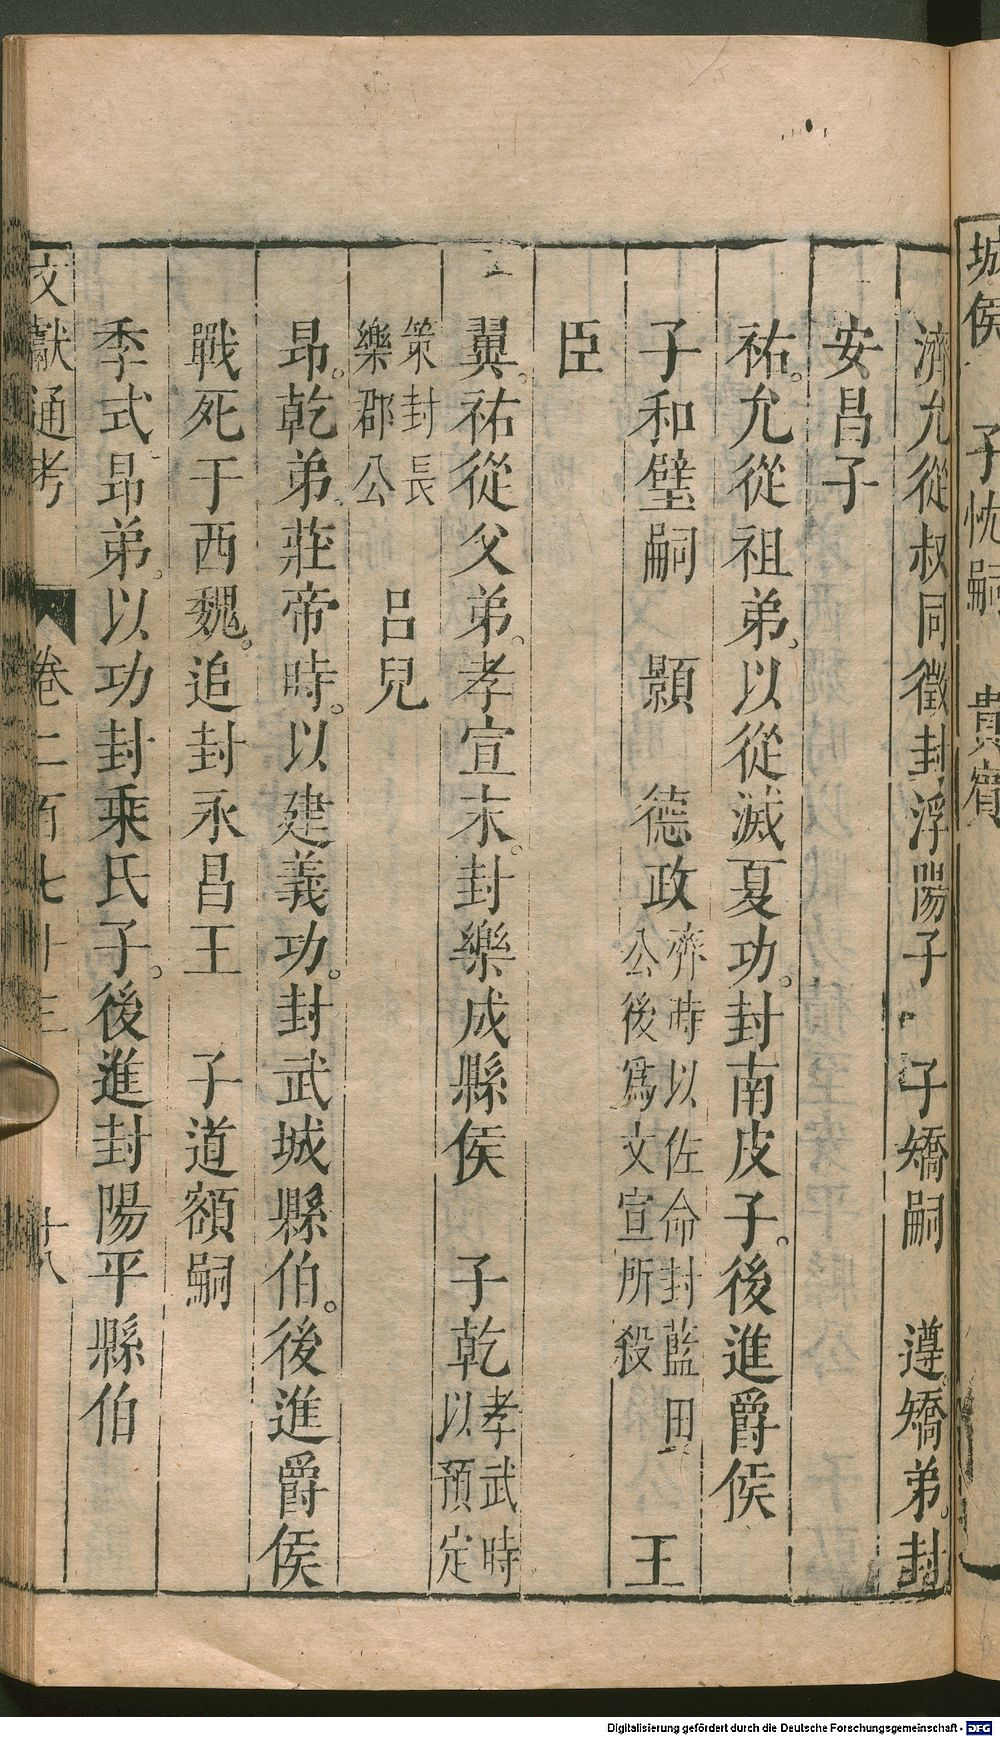 城侯 子忱嗣 貴賓
濟允從叔同徵封浮陽子 子矯嗣 遵矯弟封
安昌子
祐允從祖弟以從滅夏功封南皮子後進爵侯
子和璧嗣 顥 德政齊時以佐命封藍田公後爲文宣所殺 王
臣
翼祐從父弟孝宣末封樂成縣侯 子乾孝武時以預定
策封長樂郡公 呂兒
昂乾弟莊帝時以建義功封武城縣伯後進爵侯
戰死于西魏追封永昌王 子道額嗣
季式昂弟以功封乘氏子後進封陽平縣伯
文獻通考 卷二百七十三 十八
Digitalisierung gefördert durch die Deutsche Forschungsgemeinschaft - DFG